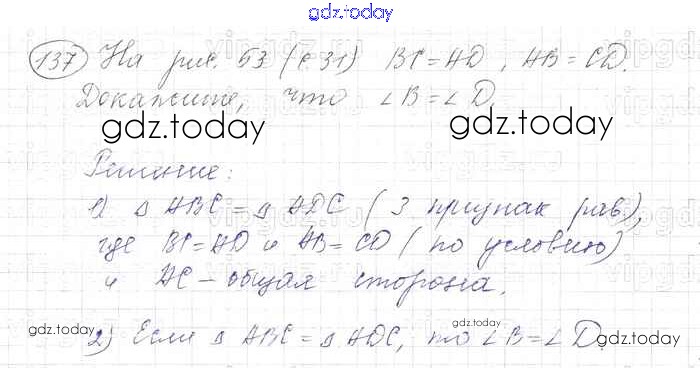 gdz.today
137 На рис. 53 (с 31) BC = AD, AB = CD.
Докажите, что ∠B = ∠D.
gdz.today gdz.today
Решение:
1) Δ ABC = Δ ADC (3 признак рав),
где BC = AD и AB = CD (по условию)
и AC – общая сторона.
gdz.today gdz.today gdz.today
2) Если Δ ABC = Δ ADC, то ∠B = ∠D.
gdz.today gdz.today